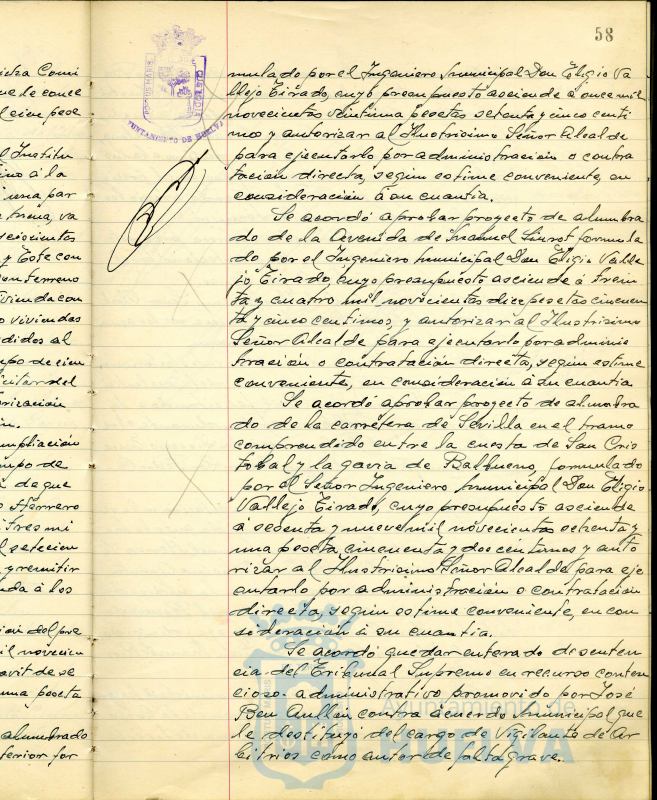 58
PORTUS MARIS
CUSTODIA
AYUNTAMIENTO DE HUELVA
mulado por el Ingeniero Municipal Don Eligio Va
llejo Tirado, cuyo presupuesto asciende a once mil
novecientas veintiuna pesetas setenta y cinco centi
mos y autorizar al Ilustrisimo Señor Alcalde
para ejecutarlo por administración o contra
tación directa, según estime conveniente, en
consideración a su cuantia.
Se acordó aprobar proyecto de alumbra
do de la Avenida de Manuel Siurot formula
do por el Ingeniero Municipal Don Eligio Valle
jo Tirado, cuyo presupuesto asciende á trein
ta y cuatro mil novecientas diez pesetas cincuen
ta y cinco centimos, y autorizar al Ilustrisimo
Señor Alcalde para ejecutarlo por adminis
tración o contratación directa, según estime
conveniente, en consideración á su cuantia
Se acordó aprobar proyecto de alumbra
do de la carretera de Sevilla en el tramo
comprendido entre la cuesta de San Cris
tobal y la gavia de Balbueno, formulado
por el Señor Ingeniero Municipal Don Eligio
Vallejo Tirado, cuyo presupuesto asciende
á sesenta y nueve mil novecientas setenta y
una peseta cincuenta y dos centimos y auto
rizar al Ilustrisimo Señor Alcalde para eje
cutarlo por administración o contratación
directa, según estime conveniente, en con
sideración á su cuantia.
Se acordó quedar enterado de senten
cia del Tribunal Supremo en recurso conten
cioso-administrativo promovido por José
Ben Aullón contra acuerdo Municipal que
le destituyó del cargo de Vigilante de Ar
bitrios como autor de falta grave.
Ayuntamiento de
HUELVA